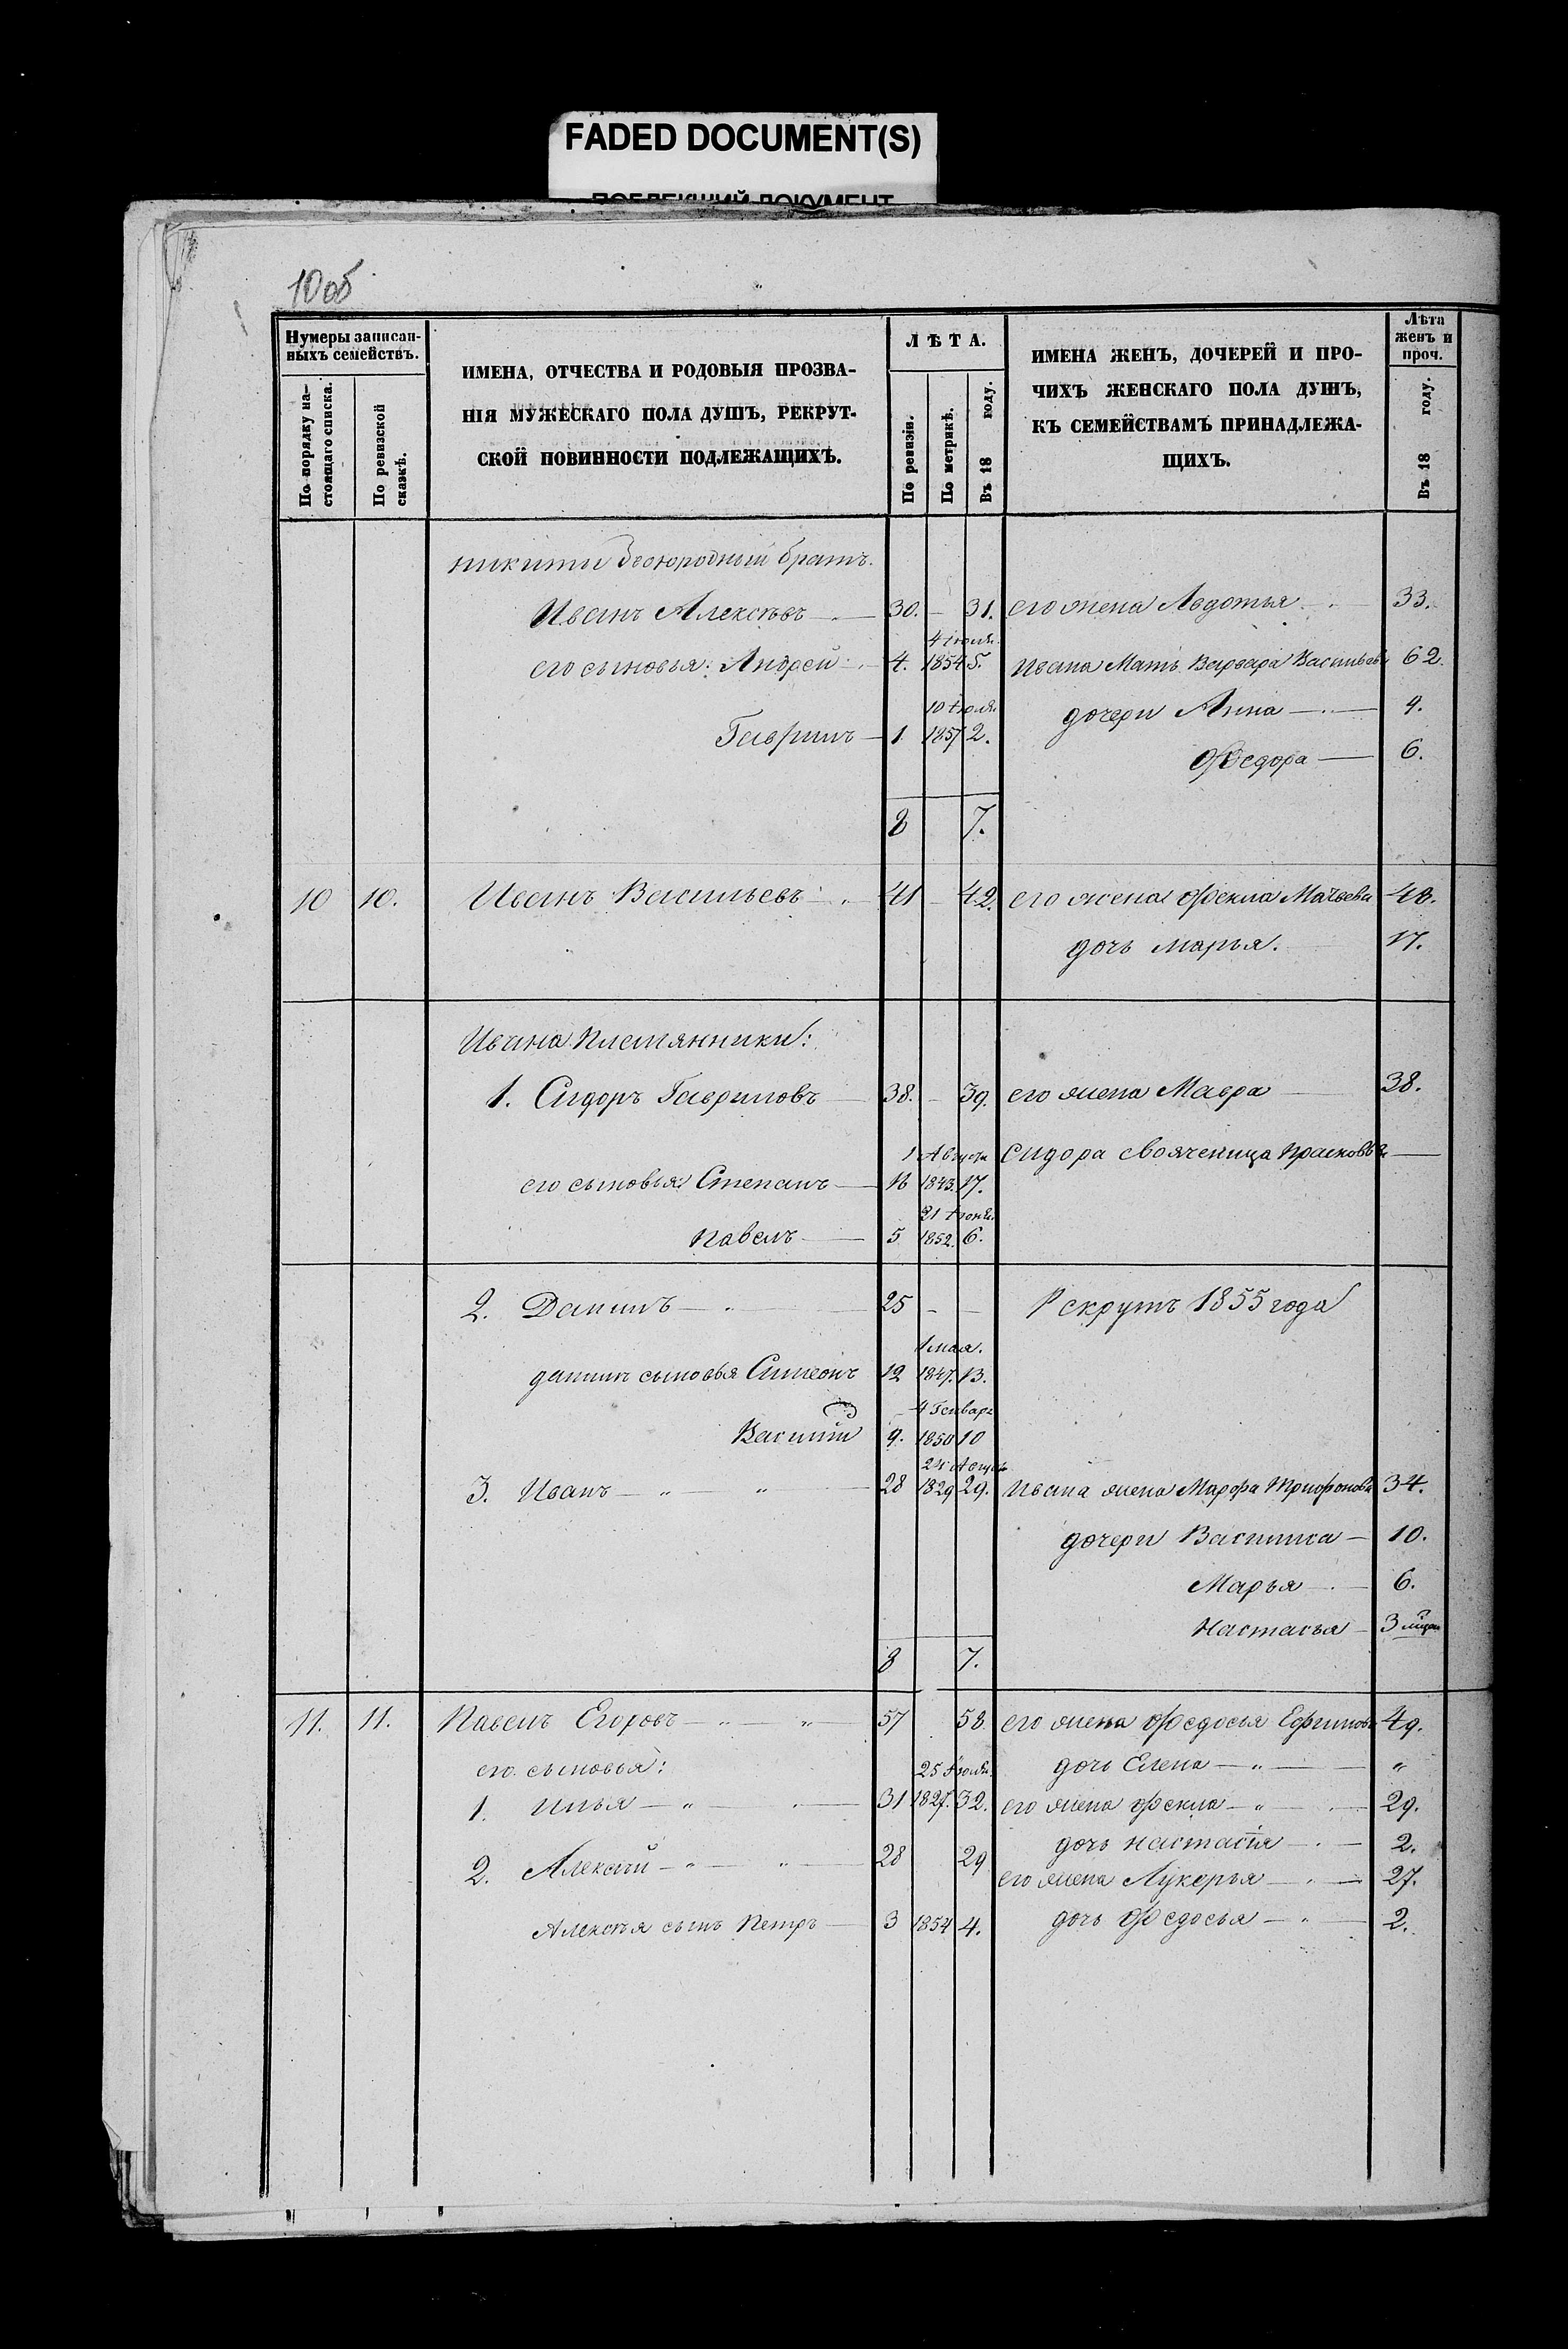 FADED DOCUMENT(S)
10 об
Нумеры записан-
ныхъ семействъ.
По порядку на-
стоящаго списка.
По ревизской
сказкѣ.
ИМЕНА, ОТЧЕСТВА И РОДОВЫЯ ПРОЗВА-
НІЯ МУЖЕСКАГО ПОЛА ДУШЪ, РЕКРУТ-
СКОЙ ПОВИННОСТИ ПОДЛЕЖАЩИХЪ.
ЛѢТА.
По ревизіи.
По метрикѣ.
Въ 18 году.
ИМЕНА ЖЕНЪ, ДОЧЕРЕЙ И ПРО-
ЧИХЪ ЖЕНСКАГО ПОЛА ДУШЪ,
КЪ СЕМЕЙСТВАМЪ ПРИНАДЛЕЖА-
ЩИХЪ.
Лѣта
женъ и
проч.
Въ 18 году.
никиты двоюродный братъ.
Иванъ Алексѣевъ — 30. — 31. его жена Авдотья — 33.
4 Іюля.
его сыновья: Андрей — 4. 1854 5. Ивана Мать Варвара Васильева 62.
10 Іюля.
дочери Анна — 9.
Гаврилъ — 1 1857 2.
Ѳедора — 6.
8 7.
10 10. Иванъ Васильевъ 41 — 42. его жена Фекла 48.
дочь марья. 17.
Ивана Племянники:
1. Сидоръ Гавриловъ 38. — 39. его жена Мавра 38.
1 Августа Сидора свояченица Прасковья —
его сыновья: Степанъ — 16 1843. 17.
21 Іюня.
Павелъ — 5 1852. 6.
2. Данилъ — 25 — — Рекрутъ 1855 года
1 мая.
данилы сыновья Симеонъ 12 1847. 13.
4 Генваря
Василий 9. 1850 10
24 Августа
3. Иванъ — 28 1829 29. Ивана жена Марфа Трифонова 34.
дочери Василиса — 10.
Марья — 6.
Настасья — 3
8 7.
11. 11. Павелъ Егоровъ — 57 58. его жена Федосья Ефимова 49.
его сыновья: 25 Іюля. дочь Елена — „
1. Илья — 31 1827. 32. его жена Фекла — 29.
дочь Настасія — 2.
2. Алексѣй — 28 29
его жена Лукерья — 27.
Алексѣя сынъ Петръ — 3 1854 4. дочь Федосья — 2.